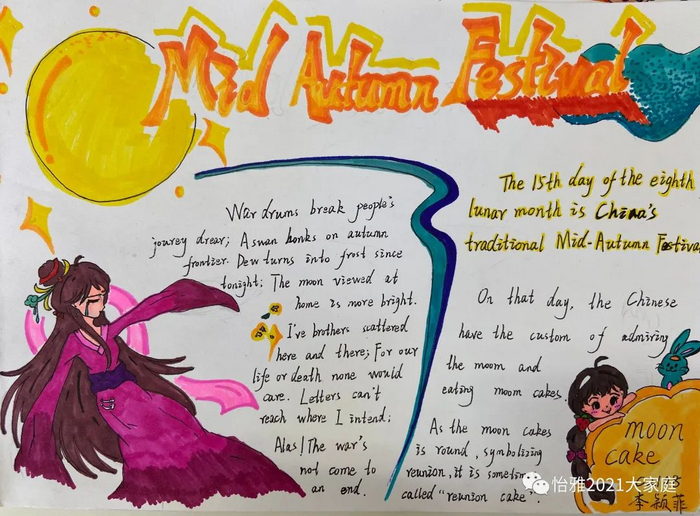 Mid Autumn Festival
War drums break people's
jourey drear; A swan honks on autumn
frontier. Dew turns into frost since
tonight; The moon viewed at
home is more bright.
I've brothers scattered
here and there; For our
life or death none would
care. Letters can't
reach where I intend;
Alas! The war's
not come to
an end.
The 15th day of the eighth
lunar month is China's
traditional Mid-Autumn Festival
On that day, the Chinese
have the custom of admiring
the moom and
eating moom cakes.
As the moom cakes
is round, symbolizing
reunion, it is sometimes
called "reunion cake".
moon
cake
李颖菲
怡雅2021大家庭